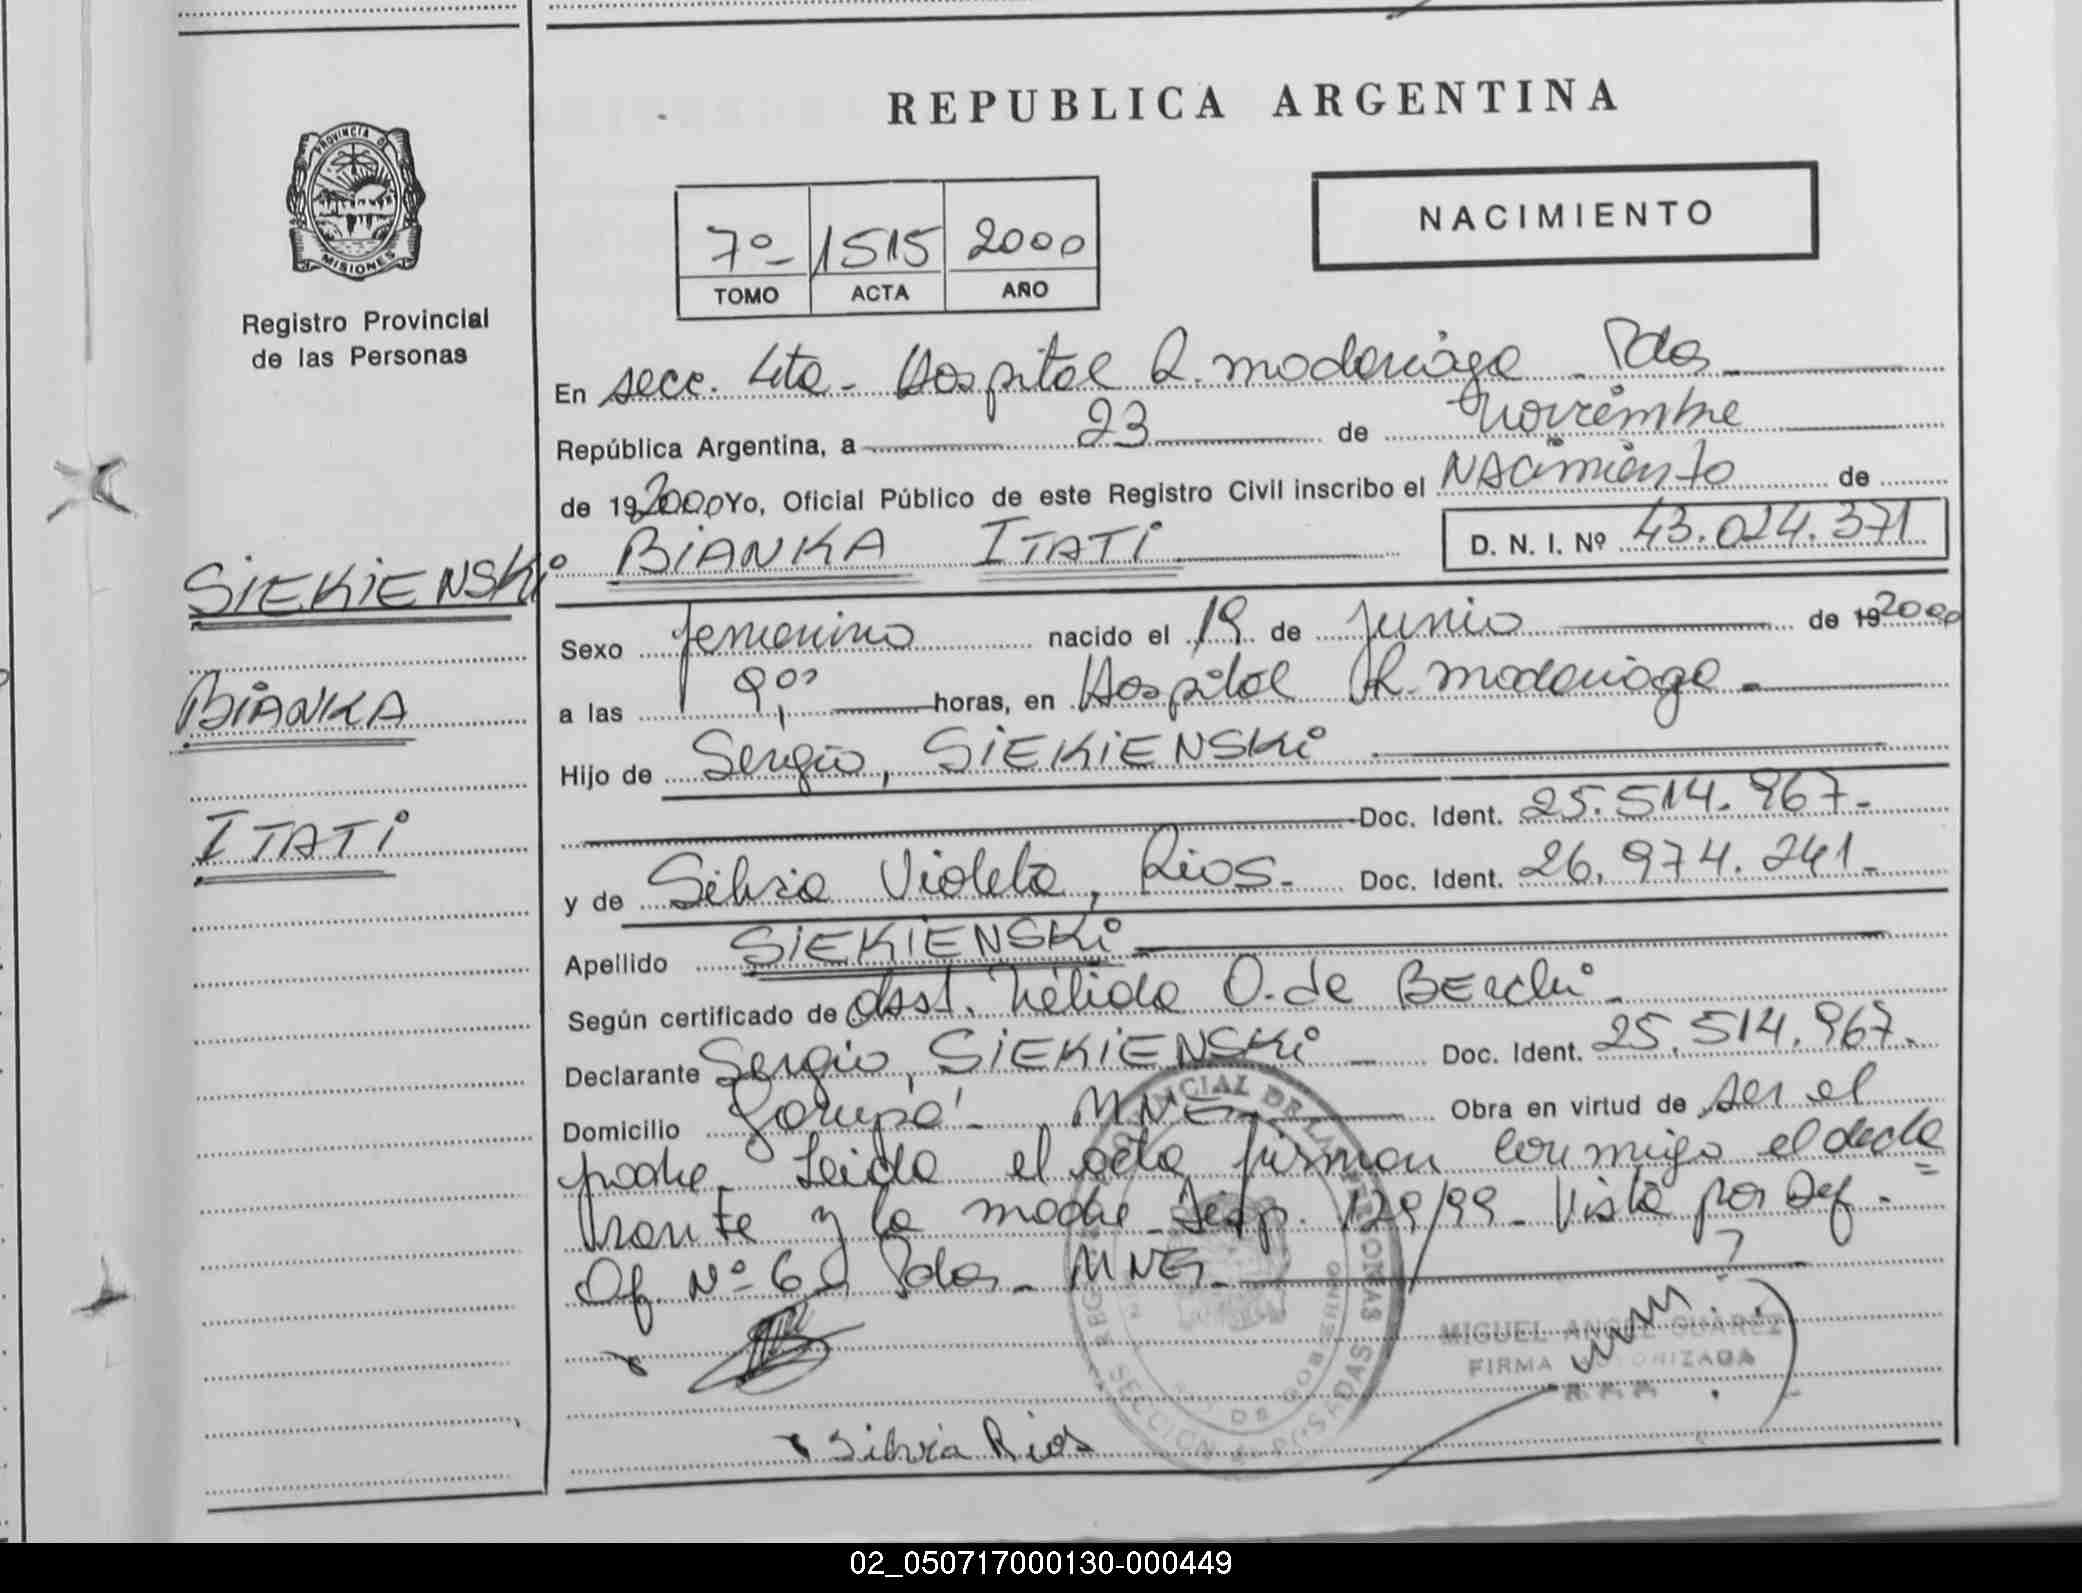 REPUBLICA ARGENTINA
PROVINCIA DE
MISIONES
Registro Provincial
de las Personas
7º 1515 2000
TOMO ACTA AÑO
NACIMIENTO
En secc. 4ta - Hospital R. Madariaga - Pdas
República Argentina, a 23 de Noviembre
de 192000 Yo, Oficial Público de este Registro Civil inscribo el NAcimiento de
SiEKiENSKi
BiANKA ITATi
D. N. I. Nº 43.024.371
BiANKA
ITATi
Sexo femenino nacido el 19 de Junio de 192000
a las horas, en Hospital R. Madariaga -
Hijo de Sergio, SiEKiENSKi
Doc. Ident. 25.514.967.-
y de Silvia Violeta, Rios.- Doc. Ident. 26.974.241.-
Apellido SiEKiENSKi
Según certificado de Obst. Nélida O. de BERchi -
Declarante Sergio, SiEKiENSKi - Doc. Ident. 25.514.967.
Domicilio Garupá - MNES. Obra en virtud de ser el
padre. Leida el acta firman conmigo el decla
rante y la madre - Disp. 129/99 - Vista por Def.-
Of. Nº 6 Pdas - MNES.-
MIGUEL ANGEL SUAREZ
FIRMA AUTORIZADA
Silvia Rios
02_050717000130-000449